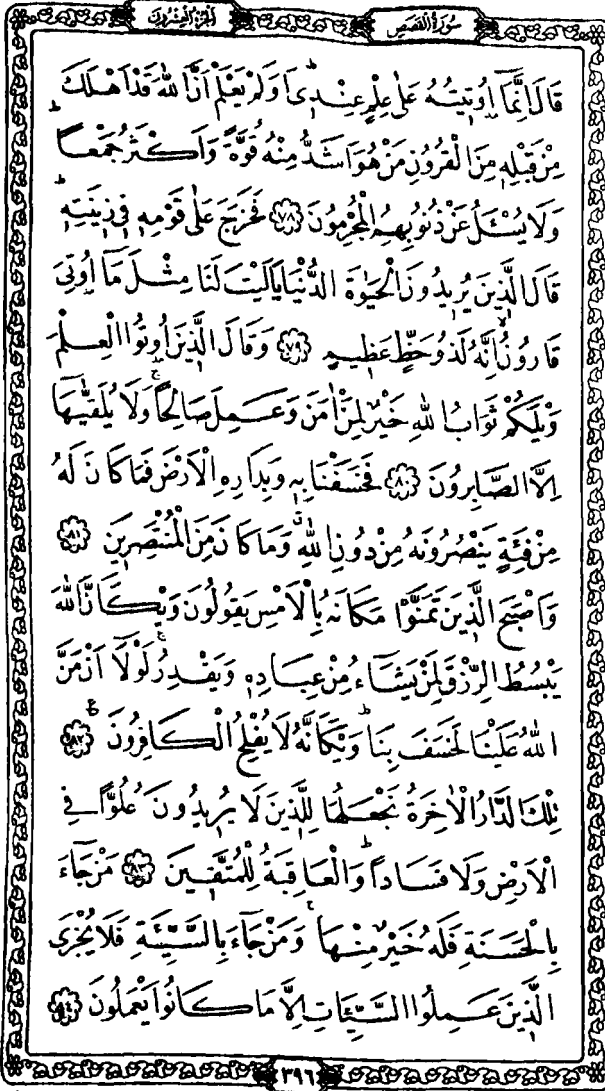 الجزء العشرون
سورة القصص
قَالَ اِنَّمَٓا اُو۫ت۪يتُهُ عَلٰى عِلْمٍ عِنْد۪يۜ اَوَلَمْ يَعْلَمْ اَنَّ اللّٰهَ قَدْ اَهْلَكَ
مِنْ قَبْلِه۪ مِنَ الْقُرُونِ مَنْ هُوَ اَشَدُّ مِنْهُ قُوَّةً وَاَكْثَرُ جَمْعاًۜ
وَلَا يُسْـَٔلُ عَنْ ذُنُوبِهِمُ الْمُجْرِمُونَ ﴿٧٨﴾ فَخَرَجَ عَلٰى قَوْمِه۪ ف۪ي ز۪ينَتِه۪ۜ
قَالَ الَّذ۪ينَ يُر۪يدُونَ الْحَيٰوةَ الدُّنْيَا يَا لَيْتَ لَنَا مِثْلَ مَٓا اُو۫تِيَ
قَارُونُۙ اِنَّهُ لَذُو حَظٍّ عَظ۪يمٍ ﴿٧٩﴾ وَقَالَ الَّذ۪ينَ اُو۫تُوا الْعِلْمَ
وَيْلَكُمْ ثَوَابُ اللّٰهِ خَيْرٌ لِمَنْ اٰمَنَ وَعَمِلَ صَالِحاًۚ وَلَا يُلَقّٰيهَٓا
اِلَّا الصَّابِرُونَ ﴿٨٠﴾ فَخَسَفْنَا بِه۪ وَبِدَارِهِ الْاَرْضَ فَمَا كَانَ لَهُ
مِنْ فِئَةٍ يَنْصُرُونَهُ مِنْ دُونِ اللّٰهِۗ وَمَا كَانَ مِنَ الْمُنْتَصِر۪ينَ ﴿٨١﴾
وَاَصْبَحَ الَّذ۪ينَ تَمَنَّوْا مَكَانَهُ بِالْاَمْسِ يَقُولُونَ وَيْكَاَنَّ اللّٰهَ
يَبْسُطُ الرِّزْقَ لِمَنْ يَشَٓاءُ مِنْ عِبَادِه۪ وَيَقْدِرُۚ لَوْلَٓا اَنْ مَنَّ
اللّٰهُ عَلَيْنَا لَخَسَفَ بِنَاۜ وَيْكَاَنَّهُ لَا يُفْلِحُ الْكَافِرُونَ ﴿٨٢﴾
تِلْكَ الدَّارُ الْاٰخِرَةُ نَجْعَلُهَا لِلَّذ۪ينَ لَا يُر۪يدُونَ عُلُواًّ فِي
الْاَرْضِ وَلَا فَسَاداًۜ وَالْعَاقِبَةُ لِلْمُتَّق۪ينَ ﴿٨٣﴾ مَنْ جَٓاءَ
بِالْحَسَنَةِ فَلَهُ خَيْرٌ مِنْهَاۚ وَمَنْ جَٓاءَ بِالسَّيِّئَةِ فَلَا يُجْزَى
الَّذ۪ينَ عَمِلُوا السَّيِّـَٔاتِ اِلَّا مَا كَانُوا يَعْمَلُونَ ﴿٨٤﴾
٣٩٦